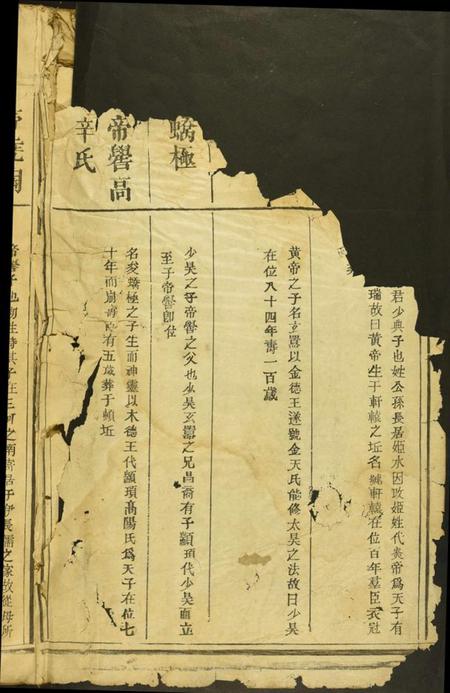 君少典子也姓公孫長居姬水因改姬姓代炎帝爲天子有
瑞故曰黃帝生于軒轅之坵名 軒轅在位百年羣臣衣冠
黃帝之子名玄囂以金德王遂號金天氏能修太昊之法故曰少昊
在位八十四年壽一百歲
蟜極
少昊之子帝嚳之父也少昊玄囂之兄昌意有子顓頊代少昊而立
至于帝嚳卽位
帝嚳高
辛氏
名夋蟜極之子生而神靈以木德王代顓頊高陽氏爲天子在位七
十年而崩壽 有五歲葬于頓坵
帝嚳子也 生時其 在三河之南寄 于伊長孺之家故從母所